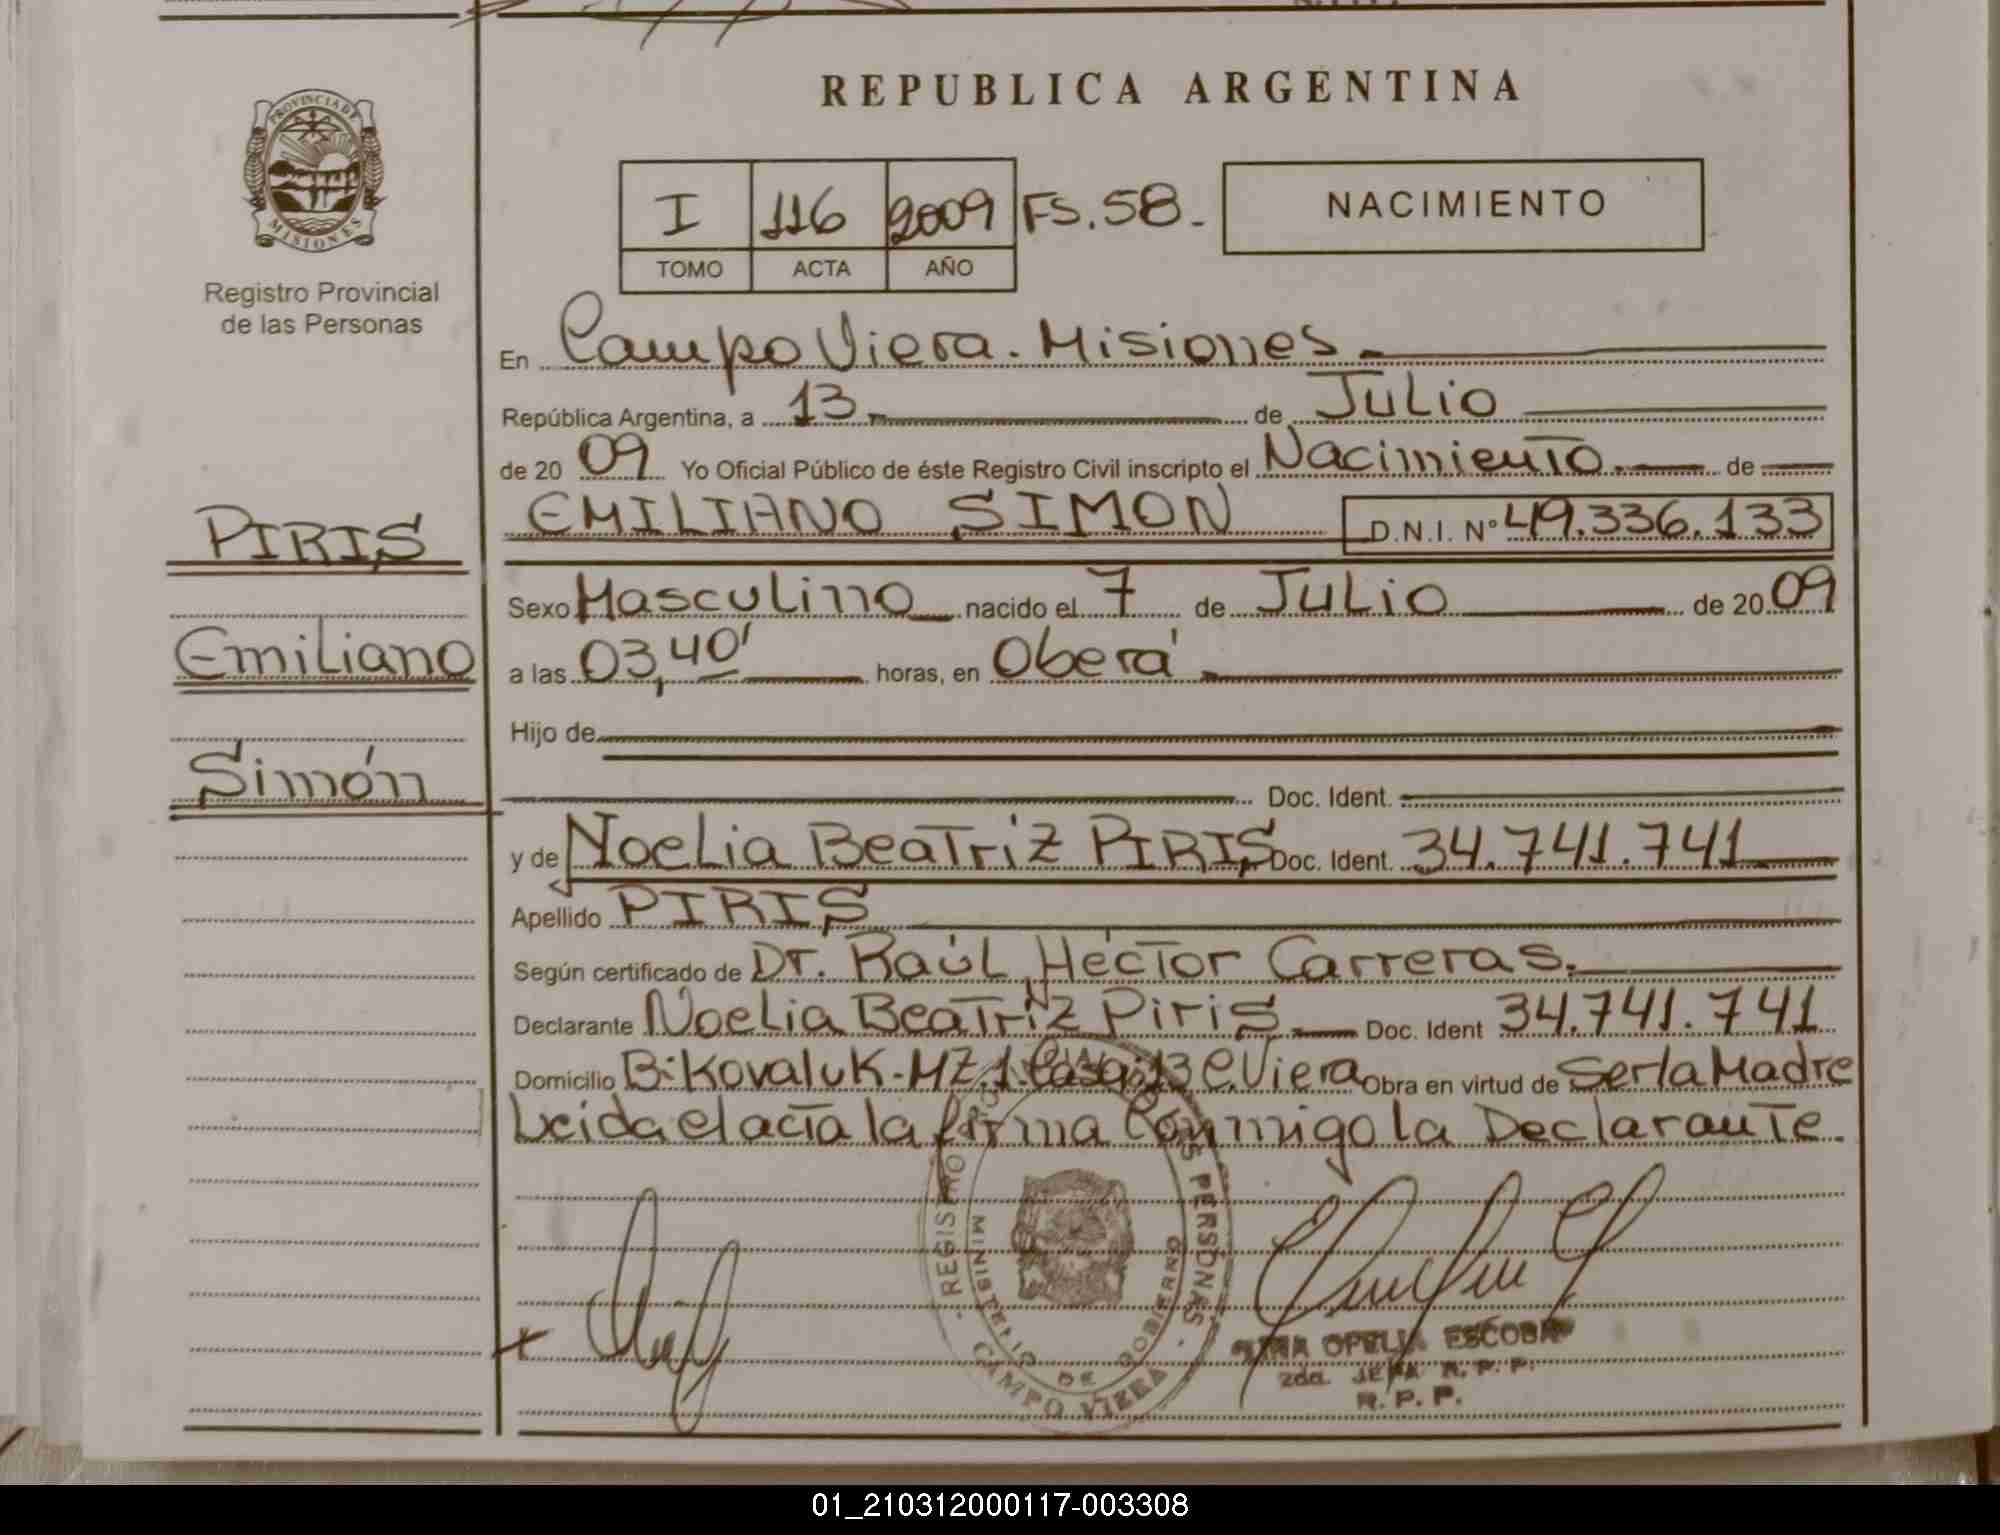 REPUBLICA ARGENTINA
PROVINCIA DE
MISIONES
Registro Provincial
de las Personas
I 116 2009 FS.58.-
TOMO ACTA AÑO
NACIMIENTO
En Campo Viera. Misiones.
República Argentina, a 13 de Julio
de 2009 Yo Oficial Público de éste Registro Civil inscripto el Nacimiento. de
EMILIANO SIMON D.N.I. Nº 49.336.133
PIRIS
Emiliano
Simón
Sexo Masculino nacido el 7 de Julio de 2009
a las 03,40' horas, en Oberá
Hijo de
Doc. Ident.
y de Noelia Beatriz PIRIS Doc. Ident. 34.741.741
Apellido PIRIS
Según certificado de Dr. Raúl Héctor Carreras.
Declarante Noelia Beatriz Piris Doc. Ident 34.741.741
Domicilio B: Kovaluk-MZ.1 Casa:13 C.Viera Obra en virtud de Ser la Madre
Leida el acta la firma Conmigo la Declarante.
REGISTRO PERSONAS
MINISTERIO DE GOBIERNO
CAMPO VIERA
OFELIA ESCOBAR
2da. JEFA R.P.P.
R.P.P.
01_210312000117-003308